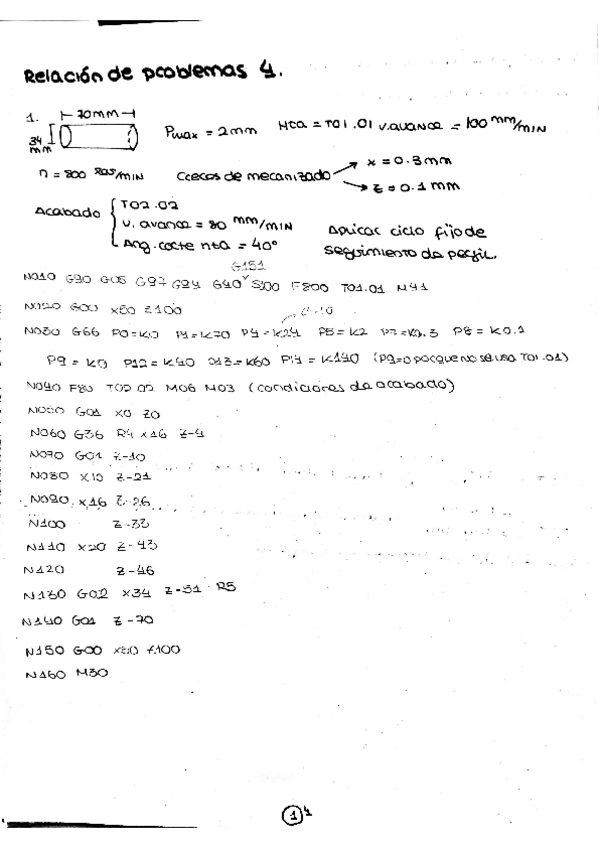 Relación de problemas 4.
1. 70mm
34 mm
Pmax = 2mm Hta = T01.01 v.avance = 100 mm/min
n = 800 rev/min Creces de mecanizado x = 0.3mm
z = 0.1mm
Acabado T02.02
v. avance = 80 mm/min
Ang. corte hta = 40°
Aplicar ciclo fijo de
seguimiento de perfil.
G151
N010 G90 G05 G97 G94 G40 S100 F800 T01.01 M41
N020 G00 X80 Z100
N030 G66 P0=K0 P1=K70 P4=K24 P5=K2 P7=K0.3 P8=K0.1
P9=K0 P12=K40 P13=K60 P14=K140 (P9=0 porque no se usa T01.01)
N040 F80 T02.02 M06 M03 (condiciones de acabado)
N050 G01 X0 Z0
N060 G36 R4 X16 Z-4
N070 G01 Z-10
N080 X10 Z-21
N090 X16 Z-26
N100 Z-33
N110 X20 Z-43
N120 Z-46
N130 G02 X34 Z-51 R5
N140 G01 Z-70
N150 G00 X80 Z100
N160 M30
1